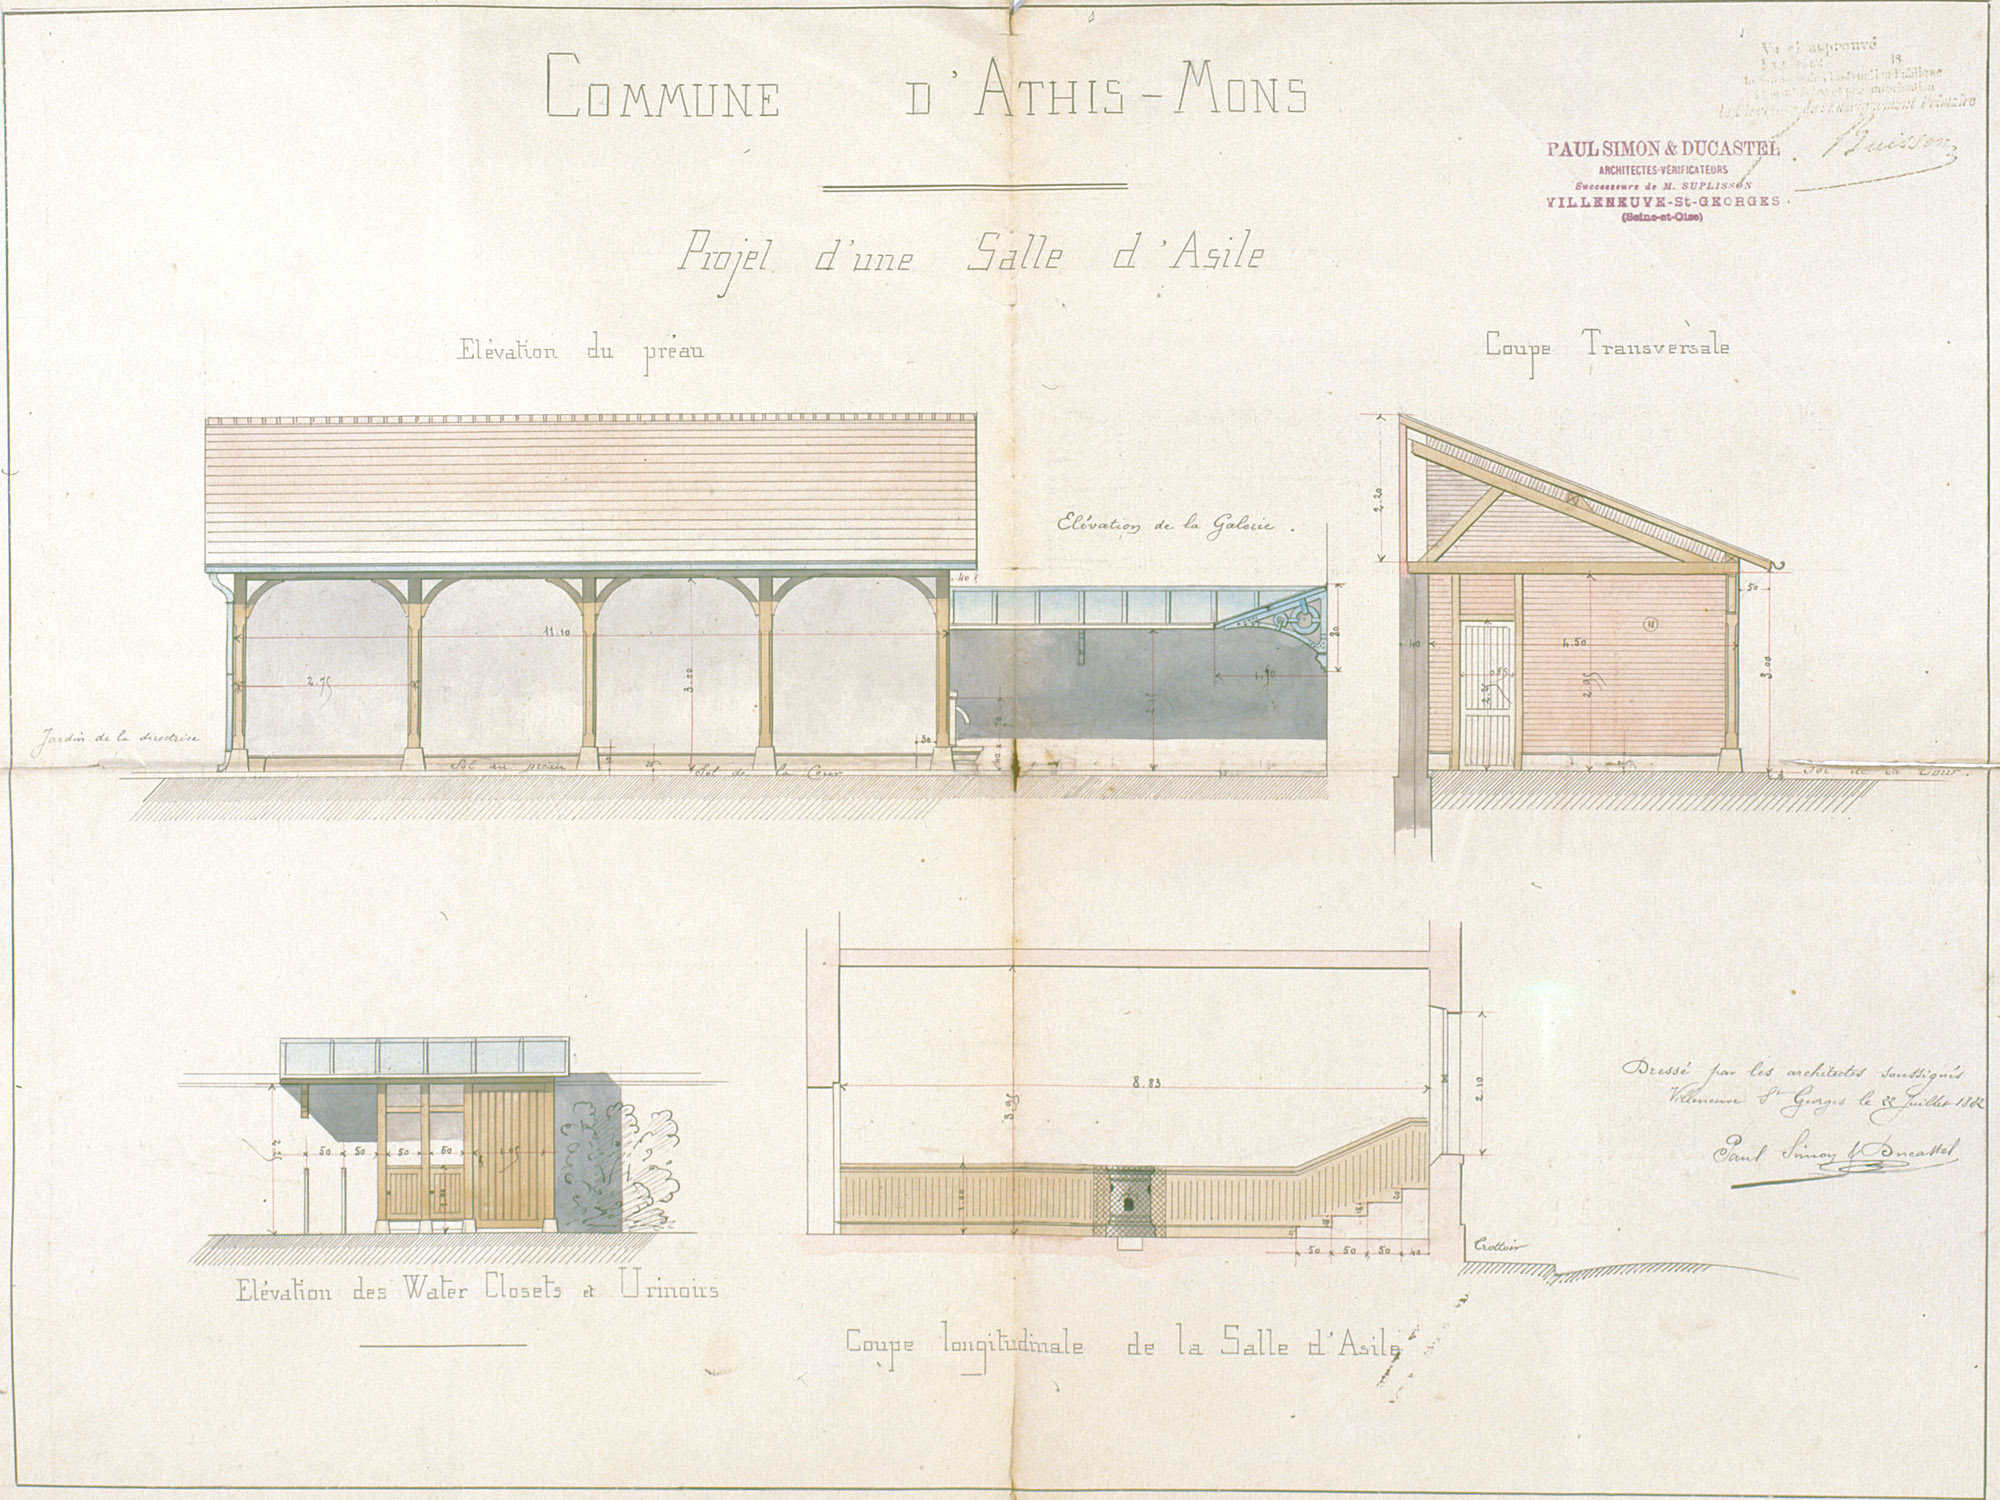 COMMUNE D'ATHIS-MONS
Vu et approuvé
Buisson
PAUL SIMON & DUCASTEL
ARCHITECTES-VÉRIFICATEURS
Successeurs de M. SUPLISSON
VILLENEUVE-St-GEORGES
(Seine-et-Oise)
Projet d'une Salle d'Asile
Elévation du préau
Coupe Transversale
2.20
Elévation de la Galerie.
40
50
11.10
2.75
3.20
90
1.50
40
4.50
85
2.95
3.00
Jardin de la directrice
30
Sol du préau
Sol de la Cour
Sol de la Cour.
8.83
3.95
2.10
50 50 50 60
1.00
1.00
20
50 50 50 40
Trottoir
Dressé par les architectes soussignés
Villeneuve St Georges le 22 Juillet 1882
Paul Simon & Ducastel
Elévation des Water Closets et Urinoirs
Coupe longitudinale de la Salle d'Asile